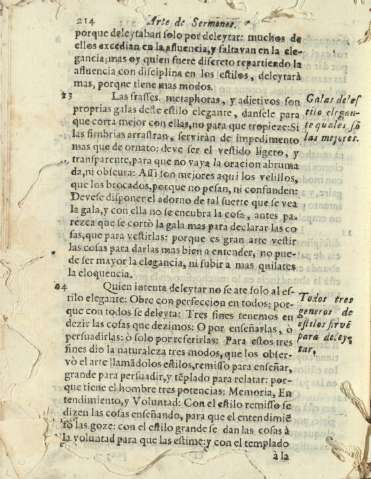 214 Arte de Sermones.
porque deleytaban solo por deleytar: muchos de
ellos excedian en la afluencia, y faltavan en la ele-
gancia; mas oy quien fuere discreto repartiendo la
afluencia con disciplina en los estilos, deleytarà
mas, porque tiene mas modos.
23 Las frasses, metaphoras, y adjetivos son
proprias galas deste estilo elegante, dansele para
que corta mejor con ellas, no para que tropieze: Si
las fimbrias arrastran, servirán de impedimento
mas que de ornato; deve ser el vestido ligero, y
transparente, para que no vaya la oracion abruma
da, ni obscura: Assi son mejores aqui los velillos,
que los brocados, porque no pesan, ni confunden:
Devese disponer el adorno de tal suerte que se vea
la gala, y con ella no se encubra la cosa, antes pa-
rezca que se cortò la gala mas para declarar las co
sas, que para vestirlas: porque es gran arte vestir
las cosas para darlas mas bien a entender, no pue-
de ser mayor la elegancia, ni subir a mas quilates
la eloquencia.
Galas del es
tilo elegan-
te quales sō
las mejores.
24 Quien intenta deleytar no se ate solo al es-
tilo elegante: Obre con perfeccion en todos: por-
que con todos se deleyta: Tres fines tenemos en
dezir las cosas que dezimos: O por enseñarlas, ò
persuadirlas: ò solo por referirlas: Para estos tres
fines dio la naturaleza tres modos, que los obser-
vò el arte llamādolos estilos, remisso para enseñar,
grande para persuadir, y tēplado para relatar: por-
que tiene el hombre tres potencias: Memoria, En
tendimiento, y Voluntad: Con el estilo remisso se
dizen las cosas enseñando, para que el entendimiē
to las goze: con el estilo grande se dan las cosas à
la voluntad para que las estime: y con el templado
à la
Todos tres
generos de
estilos sirvē
para deley-
tar,